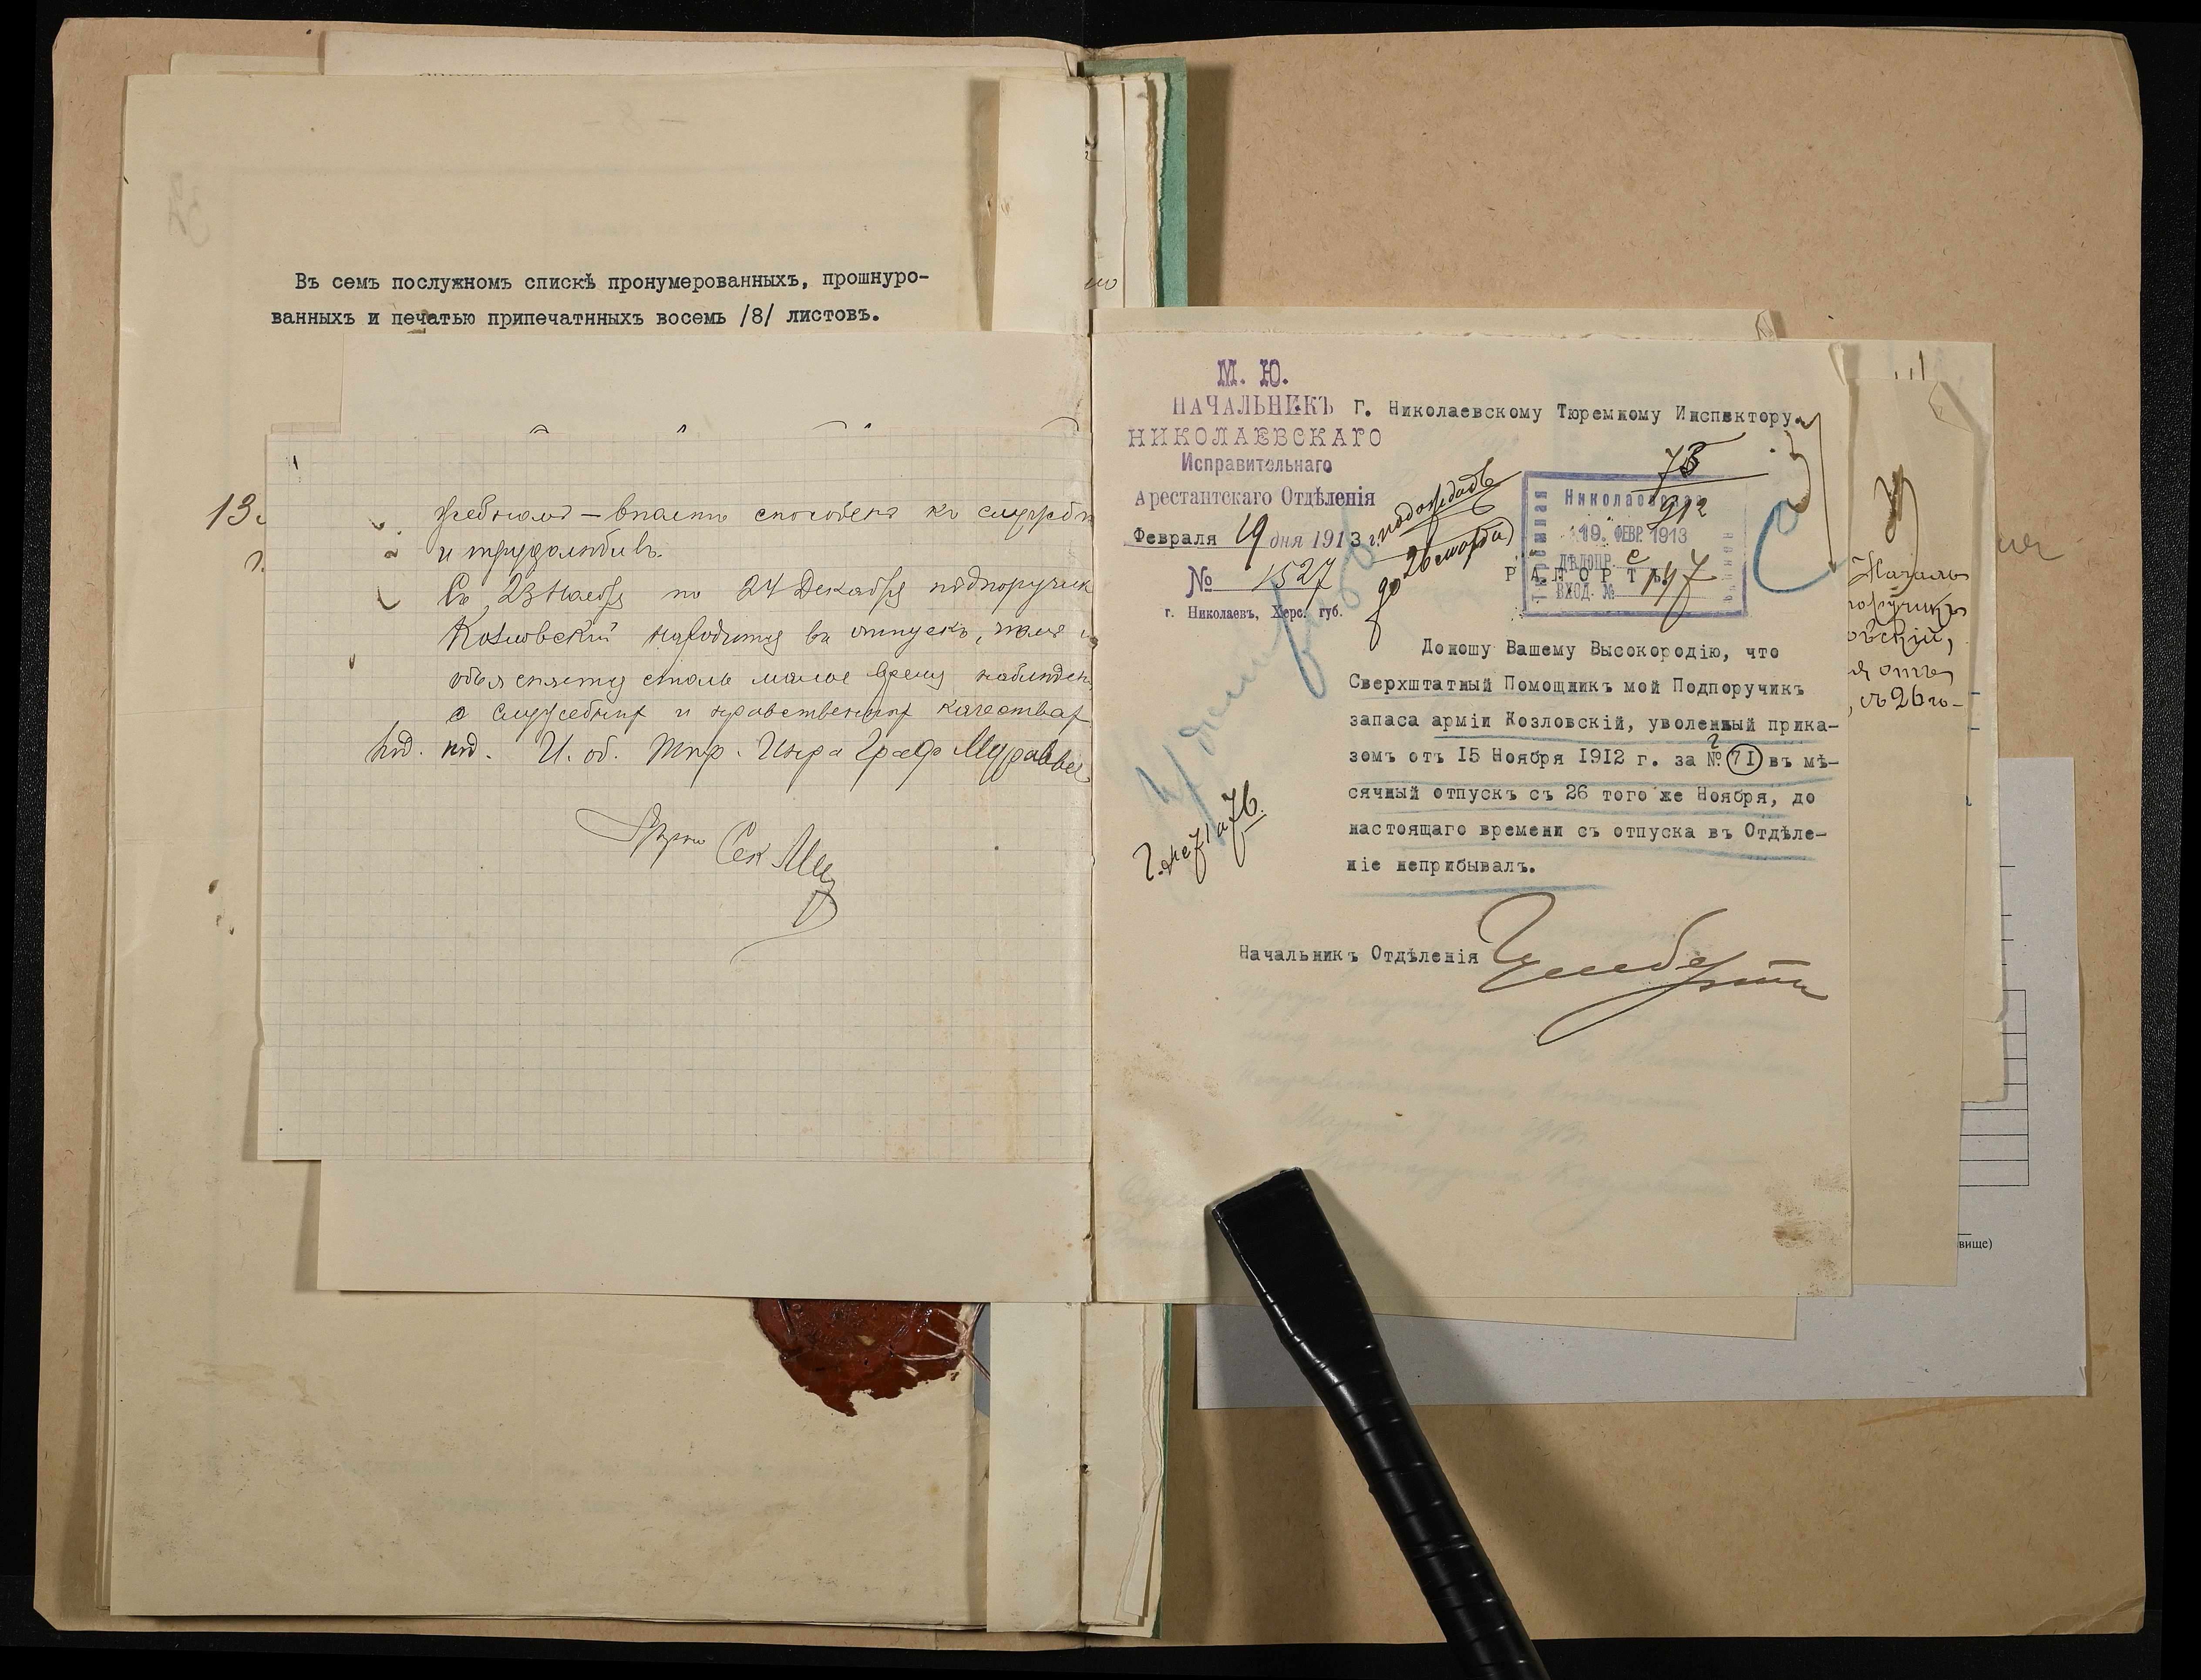 Въ семъ послужномъ спискѣ пронумерованныхъ, прошнуро-
ванныхъ и печатью припечатнныхъ восемь /8/ листовъ.
13.
служебномъ – вполнѣ способенъ къ службѣ
и трудолюбивъ.
Съ 23 Ноября по 24 Декабря подпоручик
Козловскій находится въ отпускѣ, чѣмъ и
объясняется столь малое время наблюден
о служебныхъ и нравственныхъ качествах
под. под. И. об. Тюр. Инра Графъ Муравье
Вѣрно Сек
М. Ю.
НАЧАЛЬНИКЪ
НИКОЛАЕВСКАГО
Исправительнаго
Арестантскаго Отдѣленія
Февраля 19 дня 1913 г.
№ 1527
г. Николаевъ, Херс. губ.
Г. Николаевскому Тюремному Инспектору.
подождать
до 26 марта
73
912
Николаевская
19. ФЕВР. 1913
ДѢЛОПР. С
ВХОД. № 147
РАПОРТЪ.
Доношу Вашему Высокородію, что
Сверхштатный Помощникъ мой Подпоручикъ
запаса арміи Козловскій, уволенный прика-
зомъ отъ 15 Ноября 1912 г. за № 71 въ мѣ-
сячный отпускъ съ 26 того же Ноября, до
настоящаго времени съ отпуска въ Отдѣле-
ніе неприбывалъ.
Начальникъ Отдѣленія
Началь
оручикъ
овскій,
я отъ
, съ 26 го-
вище)